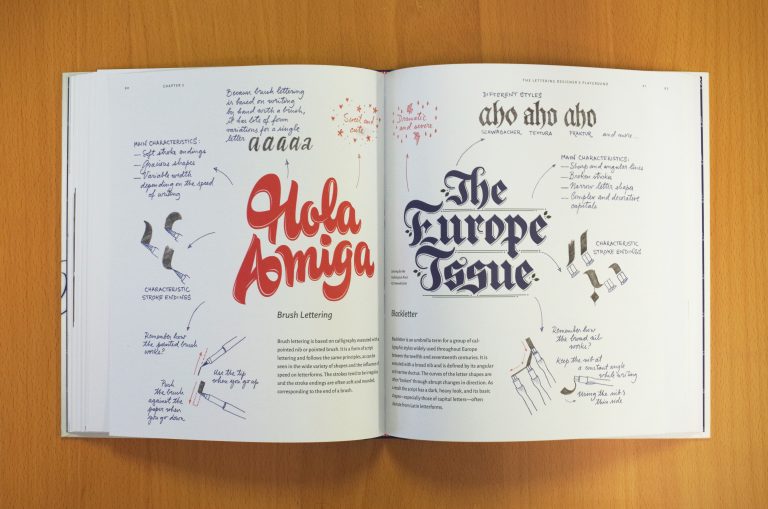 CHAPTER 2
Because brush lettering
is based on writing
by hand with a brush,
it has lots of form
variations for a single
letter
aaaaa
Sweet and
cute
MAIN CHARACTERISTICS:
— Soft stroke endings
— Gracious shapes
— Variable width
depending on the speed
of writing
Hola
Amiga
CHARACTERISTIC
STROKE ENDINGS
Brush Lettering
Brush lettering is based on calligraphy executed with a
pointed nib or pointed brush. It is a form of script
lettering and follows the same principles, as can be
seen in the wide variety of shapes and the influence of
speed on letterforms. The strokes tend to be rounded
and the stroke endings are often soft and rounded,
corresponding to the end of a brush.
Remember how
the pointed brush
works?
Use the tip
when you go up
Push
the brush
against the
paper when
you go down
THE LETTERING DESIGNER'S PLAYGROUND
DIFFERENT STYLES
aho aho aho
SCHWABACHER TEXTURA FRAKTUR and more...
Dramatic
and severe
MAIN CHARACTERISTICS:
— Sharp and angular lines
— Broken stroke
— Narrow letter shapes
— Complex and decorative
capitals
The
Europe
Issue
CHARACTERISTIC
STROKE ENDINGS
Blackletter
Blackletter is an umbrella term for a group of cal-
ligraphic styles widely used throughout Europe
between the twelfth and seventeenth centuries. It is
executed with a broad nib and is defined by its angular
and narrow ductus. The curves of the letter shapes are
often "broken" through abrupt changes in direction. As
a result the script has a dark, heavy look, and its basic
shapes—especially those of capital letters—often
deviate from Latin letterforms.
Remember how
the broad nib
works?
Keep the nib at
a constant angle
while writing
Using the nib's
thin side